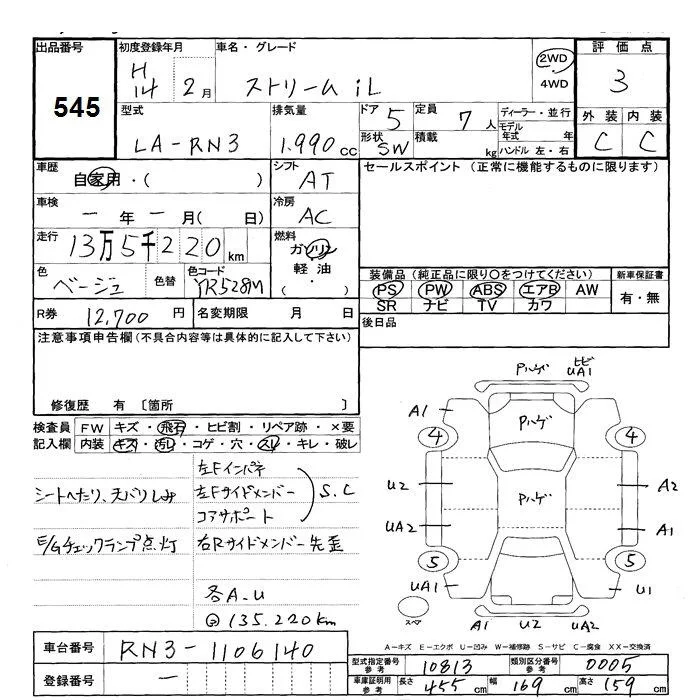 出品番号 初度登録年月 車名・グレード 2WD 4WD 評価点
545 H14 2月 ストリーム iL 3
型式 排気量 ドア 5 定員 7人 ディーラー・並行 外装 内装
LA-RN3 1.990cc 形状 SW 積載 kg モデル年式 年 ハンドル 左・右 C C
車歴 自家用・( ) シフト AT セールスポイント (正常に機能するものに限ります)
車検 ー年ー月( 日) 冷房 AC
走行 13万5千220km 燃料 ガソリン 軽油 ( ・ )
色 ベージュ 色替 色コード YR528M
装備品 (純正品に限り○をつけてください) 新車保証書
PS PW ABS エアB AW 有・無
SR ナビ TV カワ
R券 12,700円 名変期限 月 日 後日品
注意事項申告欄 (不具合内容等は具体的に記入して下さい)
修復歴 有 〔箇所 〕
検査員 FW キズ・飛石・ヒビ割・リペア跡・×要
記入欄 内装 キズ・汚レ・コゲ・穴・スレ・キレ・破レ
シートへたり、天バリしみ
E/Gチェックランプ点灯
左Fインパネ
左Fサイドメンバー
コアサポート
S.C
右Rサイドメンバー先歪
各A-U
@135.220km
Pハゲ ヒビ UA1
A1 Pハゲ
4 4
U2 Pハゲ A2
UA2 A1
5 5
UA1 U1
スペア A1 U2 UA2
A-キズ E-エクボ U-凹み W-補修跡 S-サビ C-腐食 XX-交換済
車台番号 RN3-1106140
登録番号 ー
型式指定番号 参考 10813 類別区分番号 参考 0005
車庫証明用 参考 長さ 455cm 幅 169cm 高さ 159cm